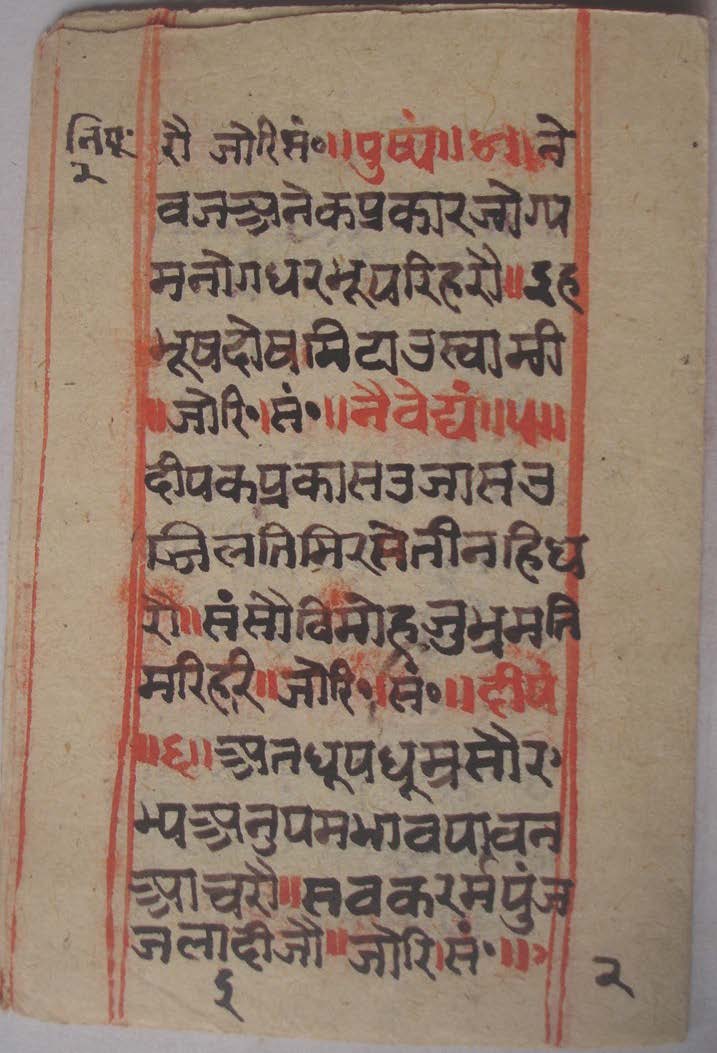 निपू॰
२
रौ जोरि सं॰ ॥ पुष्पं ॥ ४ ॥ ने
वज अनेक प्रकार जोग्य
मनोग धर भूपरिहरौ ॥ इह
भूष दोष मिटाउ स्वामी
॥ जोरि॰ । सं॰ ॥ नैवेद्यं ॥ ५ ॥
दीपक प्रकास उजास उ
जिल तिमिर सेती नहि ध
रौ ॥ संसौ विमोह जु भ्रम ति
मरि हरि ॥ जोरि॰ । सं॰ ॥ दीपं
॥ ६ ॥ अत धूप धूम्र सौर
भ्य अनुपम भाव पावन
आचरौ ॥ सव करर्म पुंज
जला दीजौ ॥ जोरि । सं॰ ॥
६
२